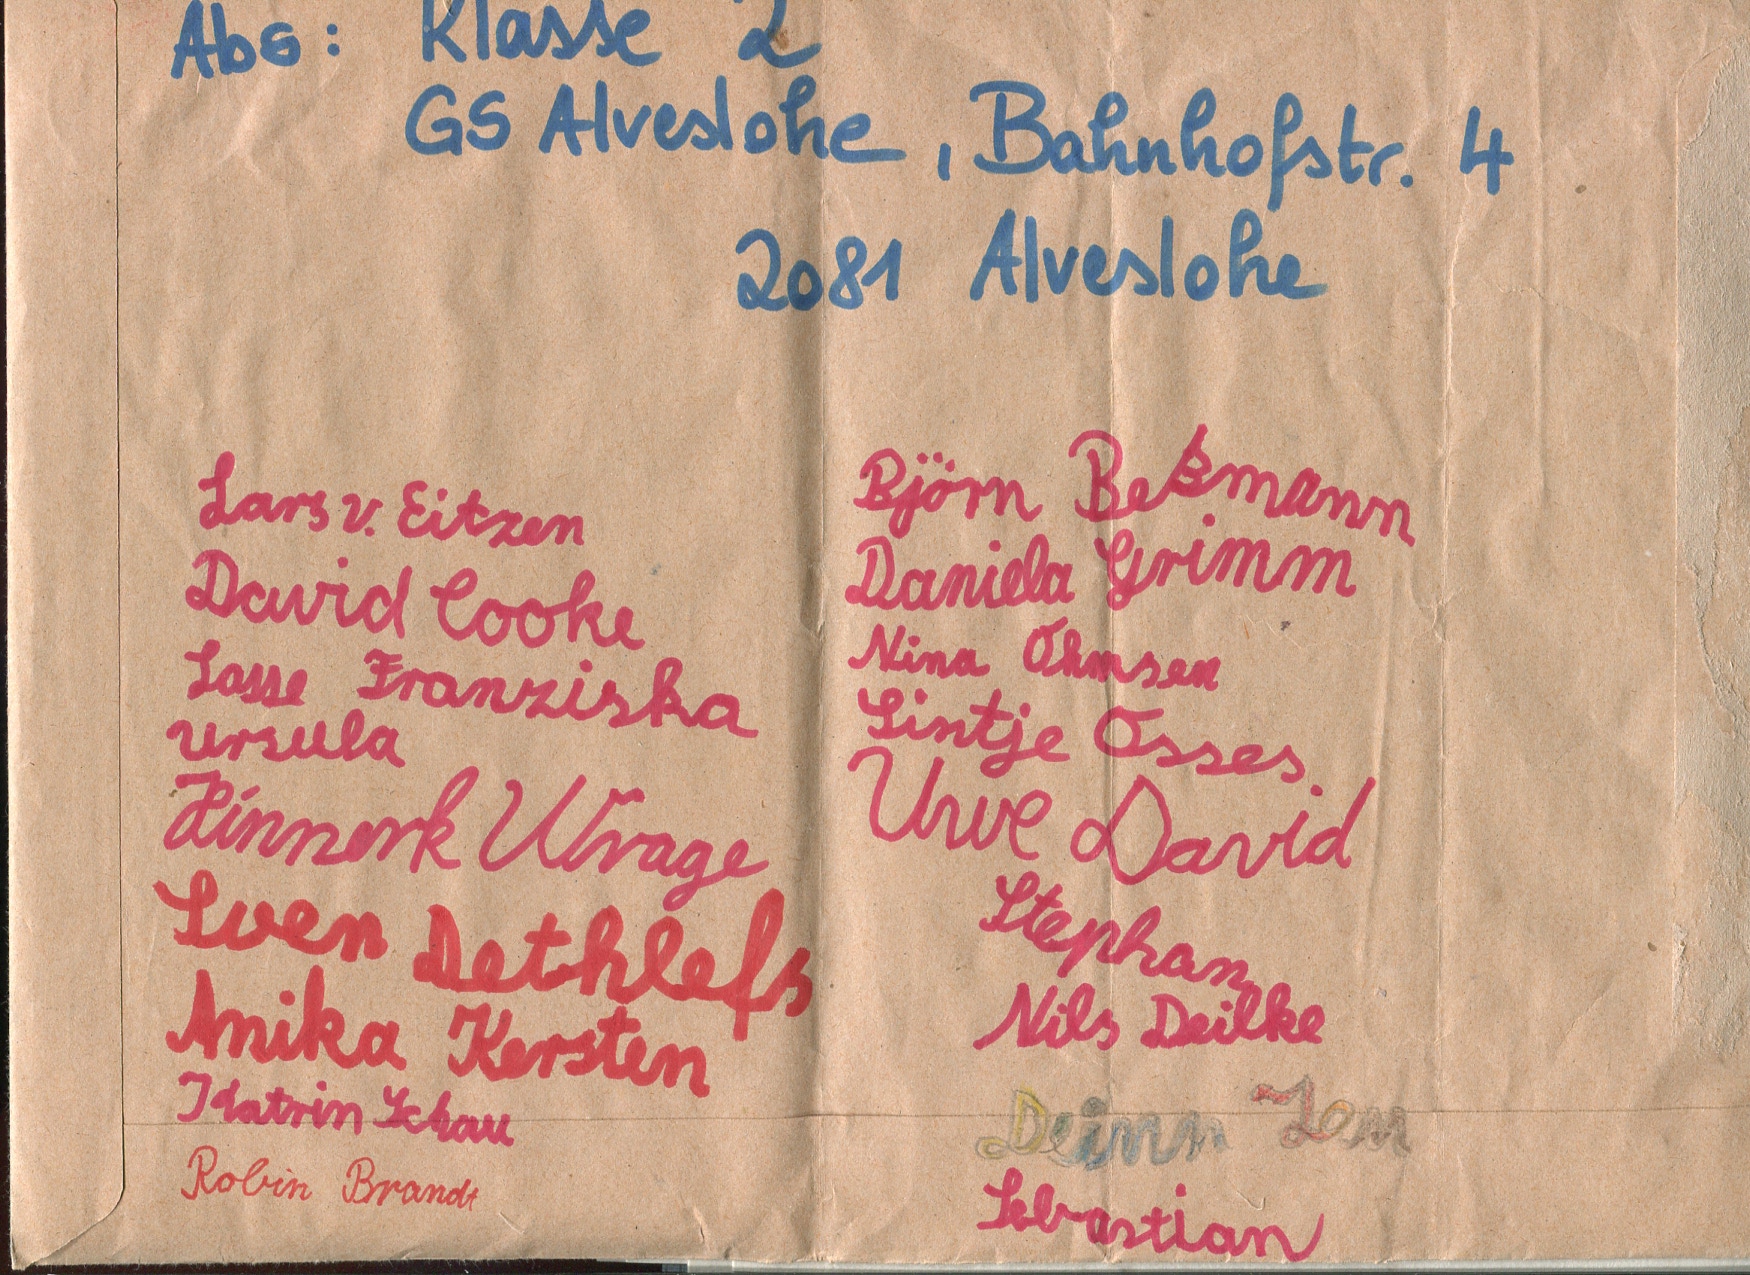 Abs: Klasse 2
GS Alveslohe, Bahnhofstr. 4
2081 Alveslohe
Lars v. Eitzen
David Cooke
Lasse Franziska
Ursula
Hinnerk Wrage
Sven Dethlefs
Anika Kersten
Katrin Schau
Robin Brandt
Björn Beßmann
Daniela Grimm
Nina Ohmsen
Sintje Osses
Uwe David
Stephan
Nils Deilke
Sebastian